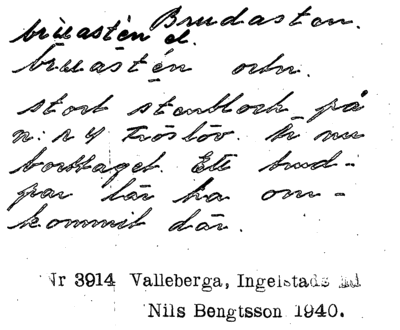 brùastèn el. Brudasten.
brùastén ortn.
stort stenblock på
n:r 4 Fröslöv. Är nu
borttaget. Ett brud-
par lär ha om-
kommit där.
Nr 3914 Valleberga, Ingelstads hd
Nils Bengtsson 1940.